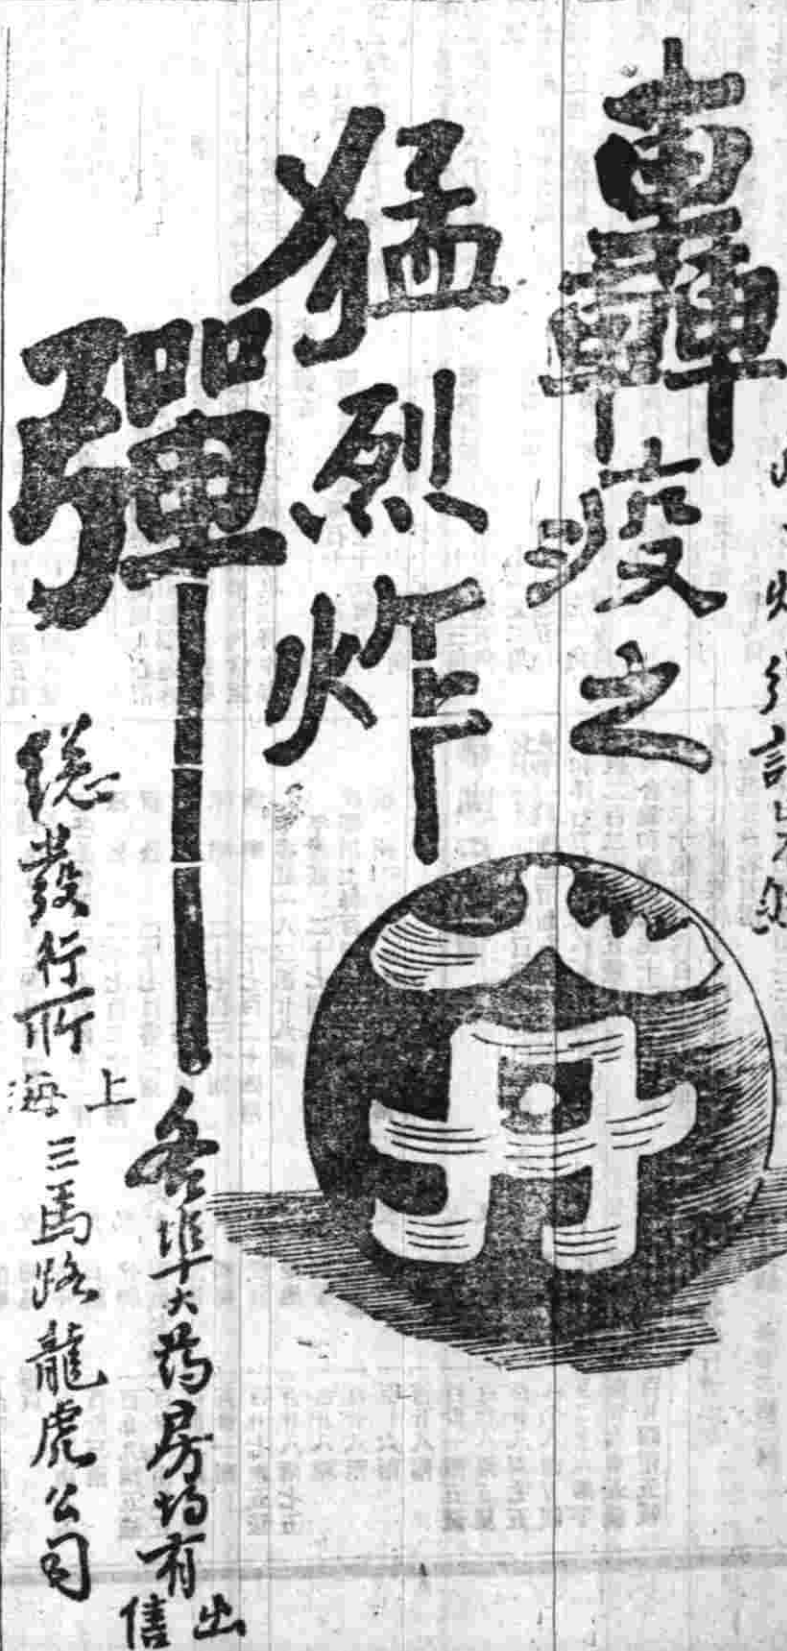 轟疫之
猛烈炸
彈
人丹
各埠大药房均有
出售
總發行所
上海
三馬路龍虎公司